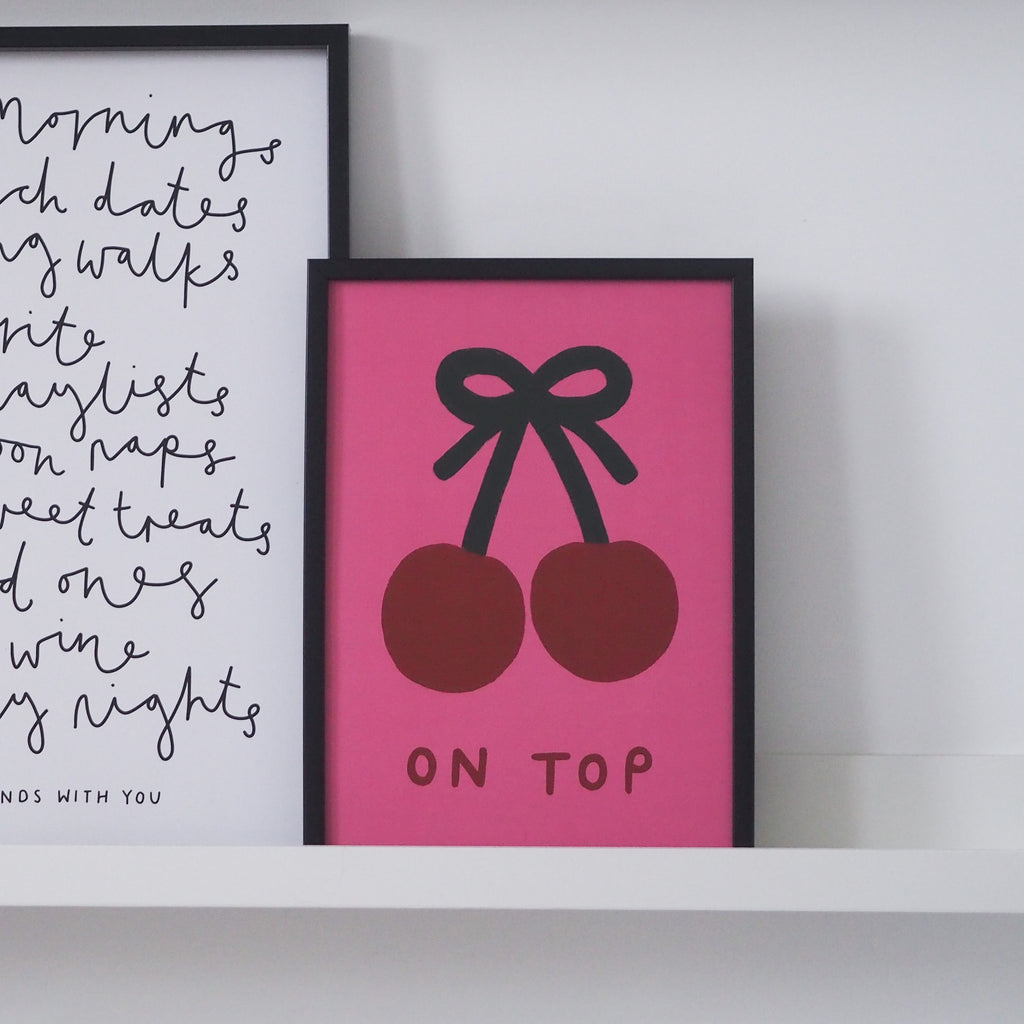 Mornings
ch dates
ng walks
rite
aylists
oon naps
weet treats
d ones
wine
y nights
NDS WITH YOU
ON TOP